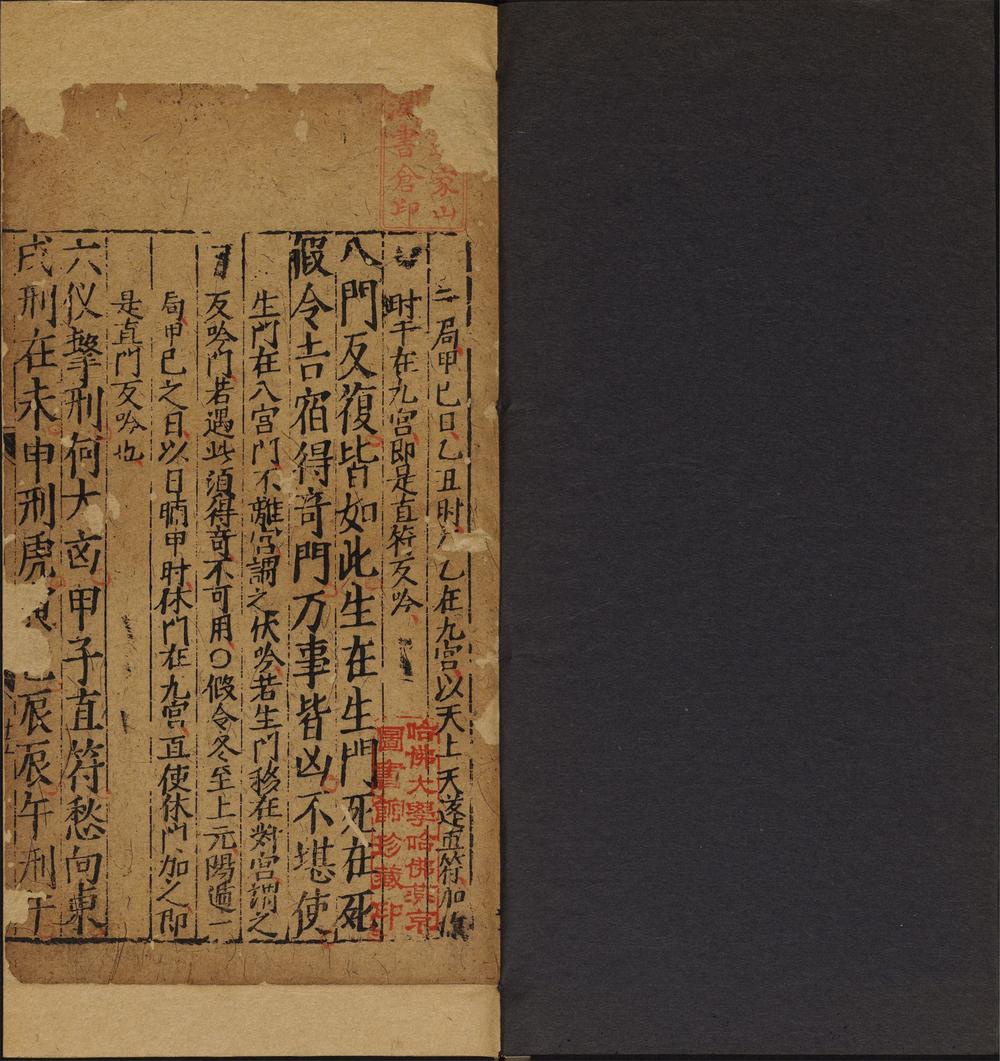 局甲己日乙丑时 乙在九宫以天上天蓬直符加
时干在九宫即是直符反吟
八門反復皆如此生在生門死在死
假令吉宿得竒門万事皆凶不堪使
生门在八宫门不離宫謂之伏吟若生门移在對宫謂之
反吟门若遇此須得竒不可用〇假令冬至上元陽遁一
局甲己之日以日晡甲时休门在九宫直使休门加之即
是直门反吟也
六仪擊刑何大凶甲子直符愁向東
戌刑在未申刑虎 辰辰午刑午
家山
書倉印
哈佛大學哈佛漢京
圖書館珍藏印